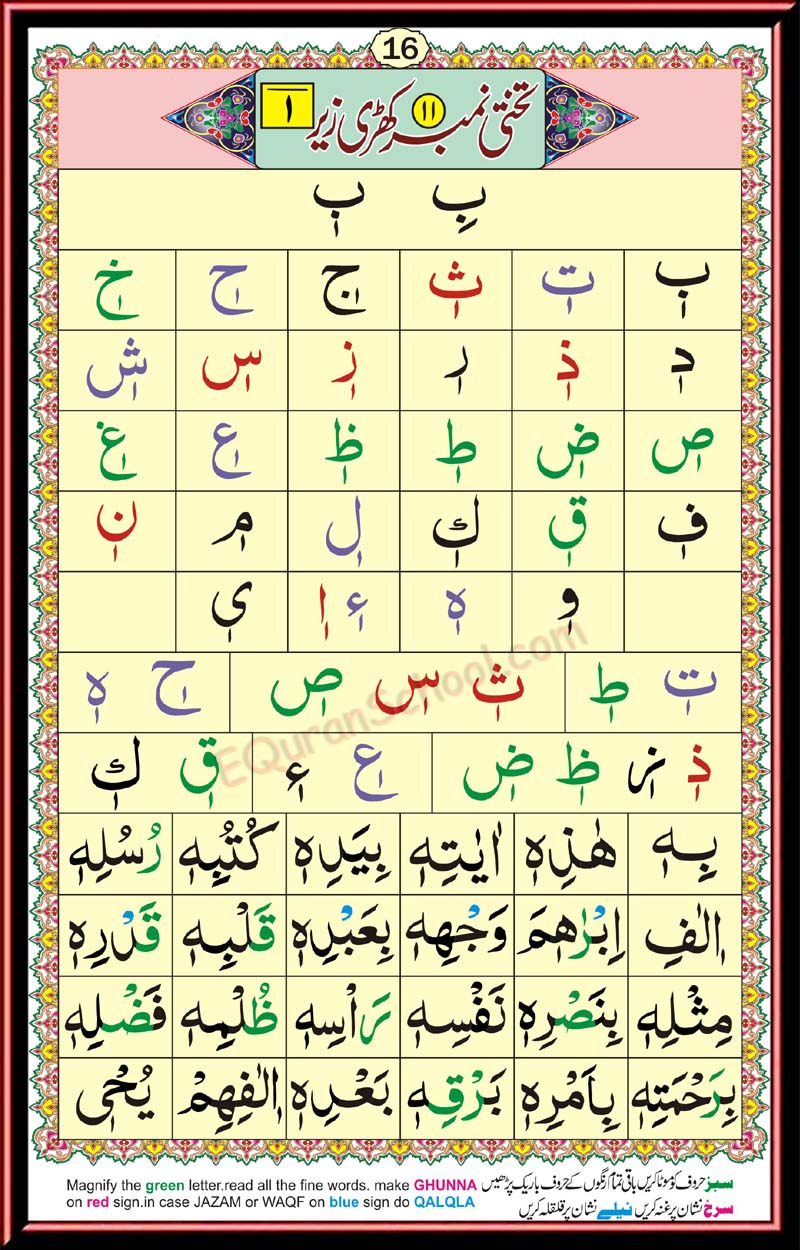 16
تختی نمبر ۱۱ کھڑی زیر ا
بِ بٖ
بٖ تٖ ثٖ جٖ حٖ خٖ
دٖ ذٖ رٖ زٖ سٖ شٖ
صٖ ضٖ طٖ ظٖ عٖ غٖ
فٖ قٖ كٖ لٖ مٖ نٖ
وٖ هٖ ءٖ اٖ یٖ
تٖ طٖ ثٖ سٖ صٖ حٖ هٖ
ذٖ زٖ ظٖ ضٖ عٖ ءٖ قٖ كٖ
بِهٖ هٰذِهٖ اٰیٰتِهٖ بِیَدِهٖ كُتُبِهٖ رُسُلِهٖ
اٖلٰفِ اِبْرٰهٖمَ وَجْهِهٖ بِعَبْدِهٖ قَلْبِهٖ قَدْرِهٖ
مِثْلِهٖ بِنَصْرِهٖ نَفْسِهٖ رَاْسِهٖ ظُلْمِهٖ فَضْلِهٖ
بِرَحْمَتِهٖ بِاَمْرِهٖ بَرْقِهٖ بَعْدِهٖ اٖلٰفِهِمْ یُحْیٖ
EQuranSchool.com
Magnify the green letter.read all the fine words. make GHUNNA
on red sign.in case JAZAM or WAQF on blue sign do QALQLA
سبز حروف کو موٹا کریں باقی تمام رنگوں کے حروف باریک پڑھیں
سرخ نشان پر غنہ کریں نیلے نشان پر قلقلہ کریں